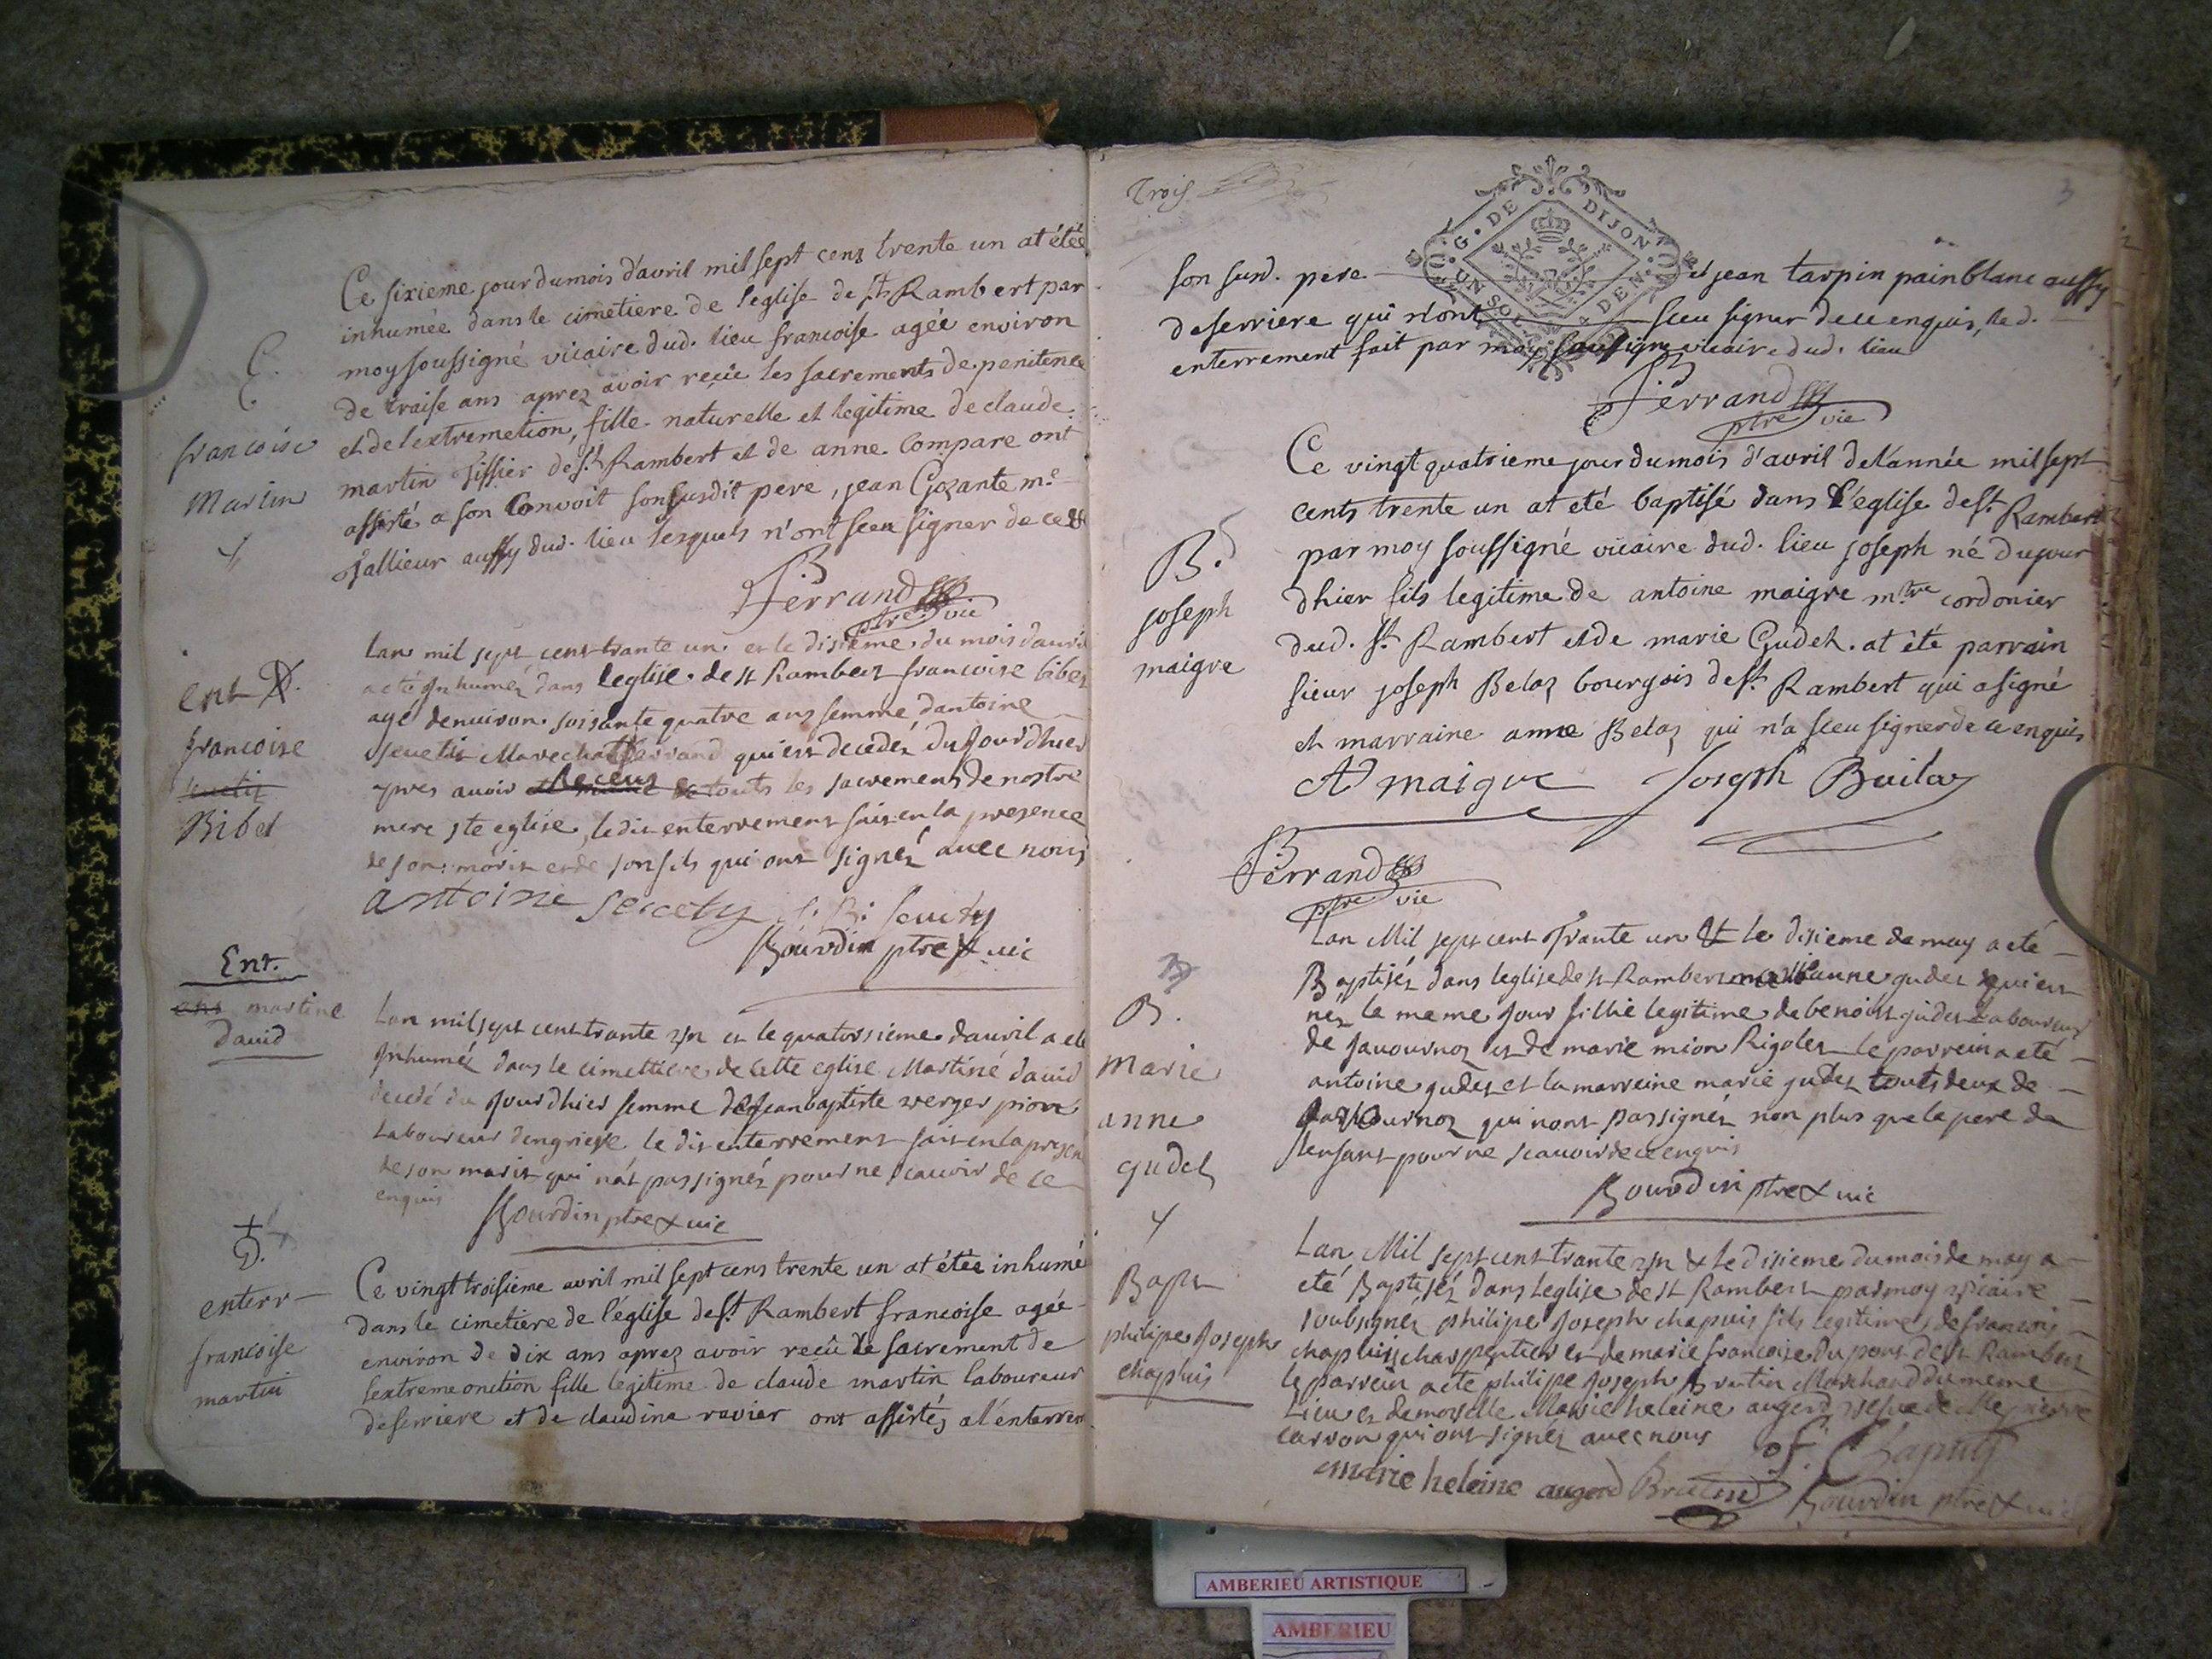 Ce sixieme jour du mois d'avril mil sept cens trente un at étée
inhumée dans le cimetiere de l'eglise de st Rambert par
moy soussigné vicaire dud. lieu francoise agée environ
de traise ans aprez avoir reçüe les sacrements de penitence
et de l'extremetion, fille naturelle et legitime de claude
martin Tissier de st Rambert et de anne Compare ont
assisté a son Convoit son susdit pere, jean Gozante me
Tallieur aussy dud. lieu lesquels n'ont sceu signer de ce
E.
francoise
Martin
Ferrand
ptre vic
Lan mil sept cent trante un et le disieme du mois davril
a eté Inhumez dans leglise de st Rambert francoise bibet
agé denuiron soisante quatre ans femme dantoine
Marechal quiest decedez du Jourdhier
apres auoir receus touts les sacremens de nostre
mere ste eglise, le dit enterrement fait en la presence
de son marit et de son fils qui ont signez auec nous
ent
francoise
Bibet
antoine
Bourdin ptre & uic
Ent.
martine
Dauid
Lan mil sept cent trante un et le quatorsieme dauril a eté
Inhumez dans le cimettiere de cette eglise Martine dauid
decedé du Jourdhier femme de Jean baptiste verger
Laboureur le dit enterrement fait en la
de son marit qui n'at pas signez pour ne scauoir de ce
enquis
Bourdin ptre & uic
enterr
francoise
martin
Ce vingt troisieme avril mil sept cens trente un at étée inhumé
dans le cimetiere de l'église de st Rambert francoise agée
environ de dix ans aprez avoir reçû le sacrement de
lextreme onction fille legitime de claude martin laboureur
deserriere et de claudine ravier ont assistéz a l'enterrem
Trois
3
G. DE DIJON
UN SOL
DEN.
son susd. pere et jean tarpin painblanc aussy
deserriere qui n'ont sceu signer de ce enquis, led.
enterrement fait par moy soussigné vicaire dud. lieu
Ferrand
ptre vic
Ce vingt quatrieme jour du mois d'avril de l'année mil sept
cents trente un at eté baptisé dans l'église de st Rambert
par moy soussigné vicaire dud. lieu joseph né du jour
dhier fils legitime de antoine maigre mtre cordonier
dud. st Rambert et de marie Gudet. at été parrain
sieur joseph Belaz bourgois de st Rambert qui a signé
et marraine anne Belaz qui n'a sceu signer de ce enquis
B.
joseph
maigre
A maigre Joseph
Ferrand
ptre vic
Lan Mil sept cent Trante un & le disieme de may a eté
Baptisez dans leglise de st Rambert anne gudet qui est
nez le meme Jour fillie legitime de benoist gudet Laboureur
de Jauournoz et de marie mion Rigolet le parrein a eté
antoine gudet et la marreine marie gudet touts deux de
Jauournoz qui nont pas signéz non plus que le pere de
lenfant pour ne scauoir de ce enquis
B.
Marie
anne
gudet
Bourdin ptre & uic
Lan Mil sept cent trante un & le disieme du mois de may a
eté Baptisez dans leglise de st Rambert par moy vicaire
soubsignez philipe Joseph chapuis fils legitime de francois
chaphuis charpentier et de marie francoise du pont de st Rambert
le parrein a ete philipe Joseph Marchand du meme
Lieu et demoiselle Marie heleine augerd
carron qui ont signez auec nous
Bapt
philipe Joseph
chaphuis
marie heleine augerd
Bourdin ptre & uic
AMBERIEU ARTISTIQUE
AMBERIEU